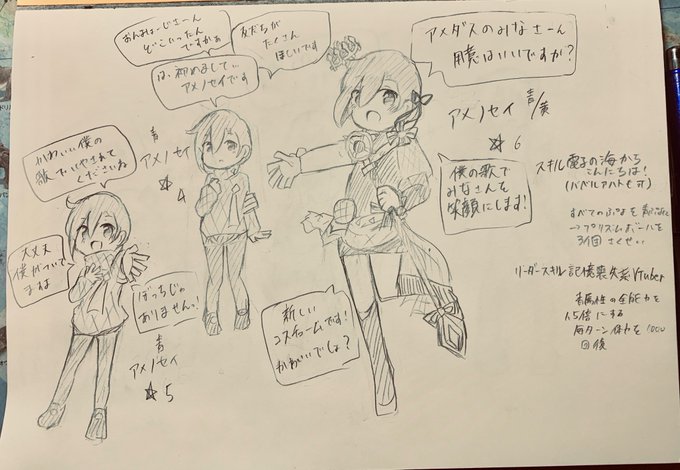 おんみょーじさーん
どこいったん
ですかぁ
友だちが
たくさん
ほしいです
は、初めまして、
アメノセイです
アメダスのみなさーん
用意はいいですか?
青
アメノセイ
☆4
アメノセイ 青/黄
☆6
かわいい僕の
歌でいやされて
くださいね
僕の歌で
みなさんを
笑顔にします!
大丈夫
僕がついて
ますよ
ぼっちじゃ
ありませんっ!
青
アメノセイ
☆5
新しい
コスチュームです!
かわいいでしょ?
スキル 電子の海から
こんにちは!
すべてのぷよを
→プリズムボールを
3個
リーダースキル 記憶喪失系Vtuber
青属性の全能力を
1.5倍にする
毎ターン体力を1000
回復